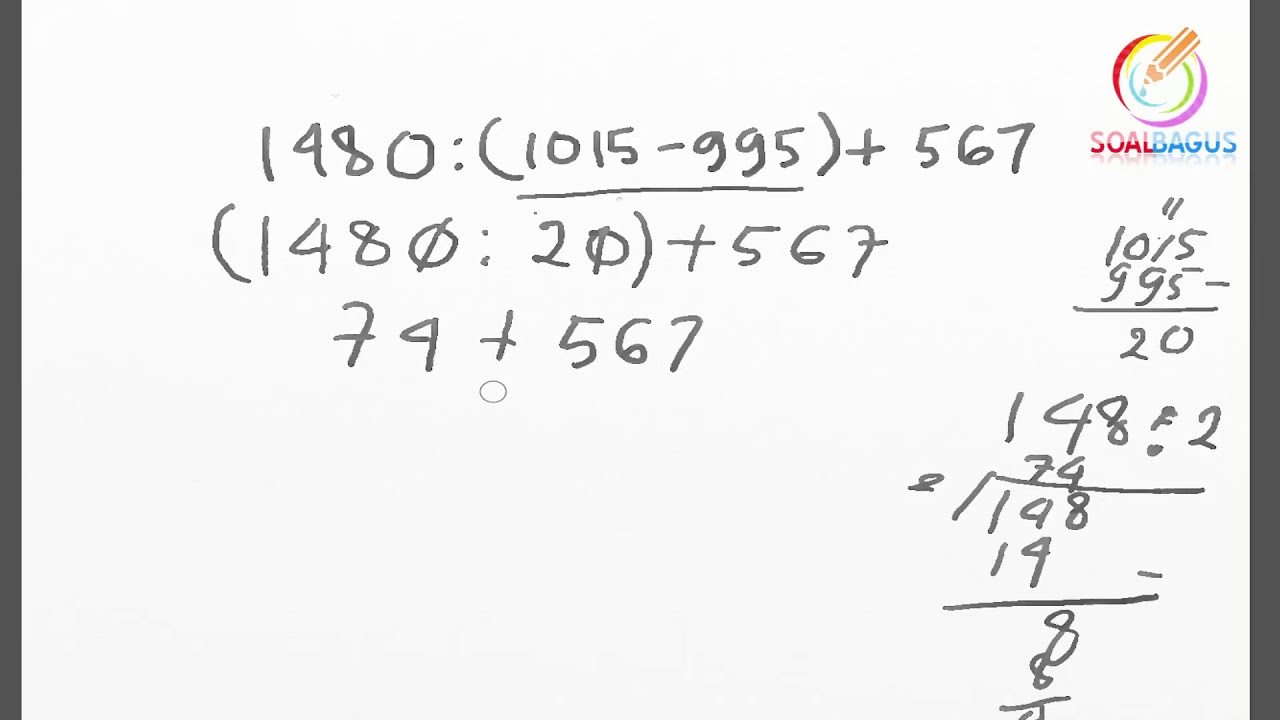 SOALBAGUS
1480:(1015-995)+567
(1480:20)+567
74+567
1015
995 -
20
148:2
74
2 /148
14 -
8
8